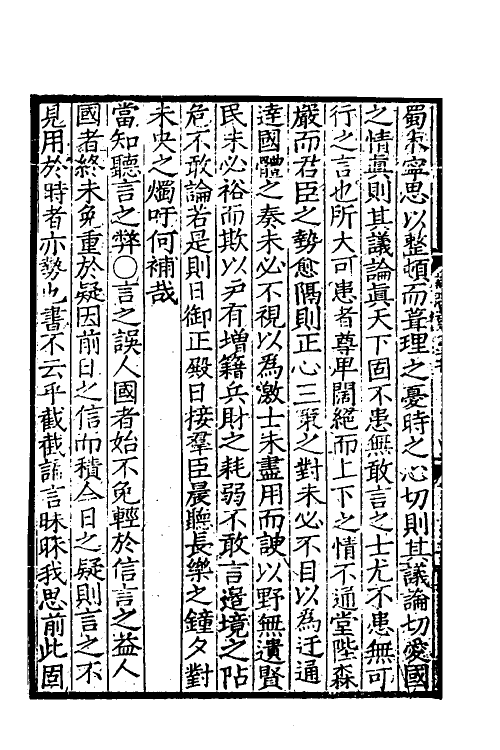 蜀未寧思以整頓而葺理之憂時之心切則其議論切愛國
之情眞則其議論眞天下固不患無敢言之士尤不患無可
行之言也所大可患者尊卑闊絕而上下之情不通堂陛森
嚴而君臣之勢愈隅則正心三聚之對未必不目以為迂通
達國體之奏未必不視以為激士未盡用而諛以野無遺賢
民未必裕而欺以戸有増籍兵財之耗弱不敢言邉境之阽
危不敢論若是則日御正殿日接羣臣晨聽長樂之鐘夕對
未央之燭吁何補哉
當知聽言之弊○言之誤人國者始不免輕於信言之益人
國者終未免重於疑因前日之信而積今日之疑則言之不
見用於時者亦勢也書不云乎截截諞言昧昧我思前此固